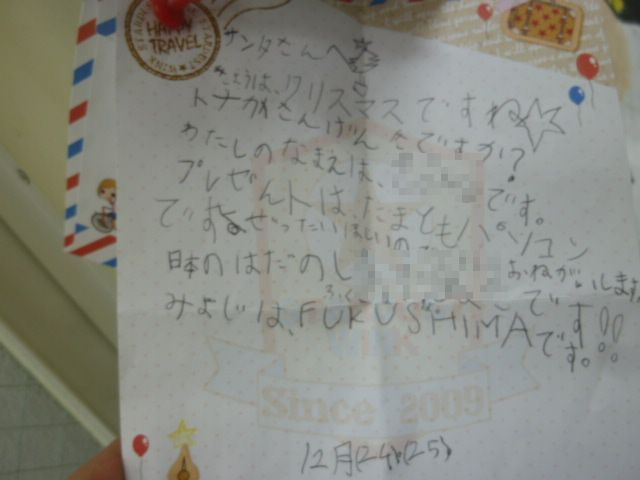 HAPPY
TRAVEL
サンタさんへ
きょうは、クリスマスですね
トナカイさんげんきですか?
わたしのなまえは、
です。
プレゼントは、たまともパソコン
ですよ ぜったいほしいの
おねがいします
日本のはだのし
です!!
みょじは、FUKUSHIMAです。
ふく
Since 2009
12月(24)(25)